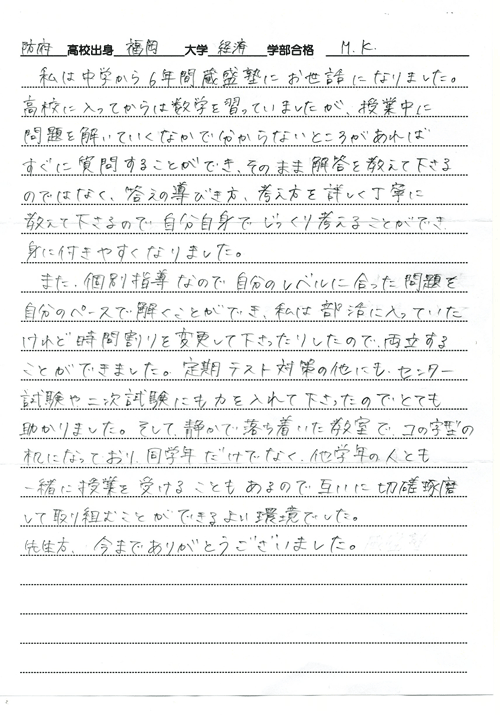 防府 高校出身 福岡 大学 経済 学部合格 M.K.
私は中学から6年間蔵盛塾にお世話になりました。
高校に入ってからは数学を習っていましたが、授業中に
問題を解いていくなかで分からないところがあれば
すぐに質問することができ、そのまま解答を教えて下さる
のではなく、答えの導びき方、考え方を詳しく丁寧に
教えて下さるので自分自身でじっくり考えることができ、
身に付きやすくなりました。
また、個別指導なので自分のレベルに合った問題を
自分のペースで解くことができ、私は部活に入っていた
けれど時間割りを変更して下さったりしたので、両立する
ことができました。定期テスト対策の他にも、センター
試験や二次試験にも力を入れて下さったのでとても
助かりました。そして、静かで落ち着いた教室で、コの字型の
机になっており、同学年だけでなく、他学年の人とも
一緒に授業を受けることもあるので互いに切磋琢磨
して取り組むことができるよい環境でした。
先生方、今までありがとうございました。